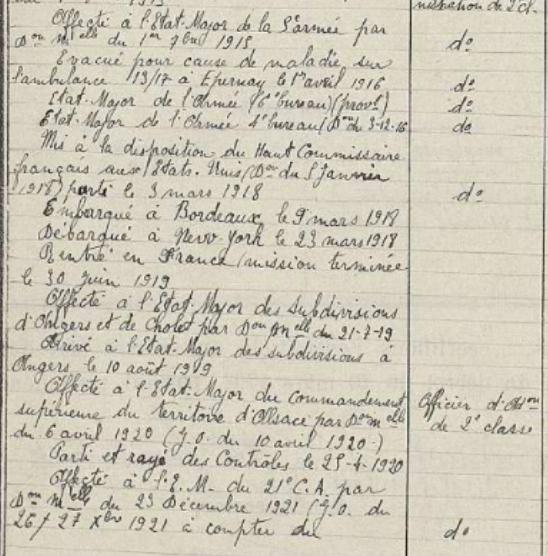 1915
nistration de 2e cl.
Affecté à l'Etat-Major de la 5e armée par
Don Melle du 1er 7bre 1915
do
Evacué pour cause de maladie sur
l'ambulance 13/17 à Epernay le 1er avril 1916
do
Etat-Major de l'Armée (6e bureau) (provt)
do
Etat-Major de l'Armée 4e bureau (Don du 3-12-16
do
Mis à la disposition du Haut Commissaire
français aux Etats-Unis (Don du 5 janvier
1918) parti le 3 mars 1918
do
Embarqué à Bordeaux le 9 mars 1918
Débarqué à New-York le 23 mars 1918
Rentré en France (mission terminée
le 30 juin 1919
Affecté à l'Etat-Major des subdivisions
d'Angers et de Cholet par Don Melle du 21-7-19
Arrivé à l'Etat-Major des subdivisions à
Angers le 10 août 1919
Affecté à l'Etat-Major du Commandement
supérieure du territoire d'Alsace par Don Melle
Officier d'Adon
du 6 avril 1920 (J.O. du 10 avril 1920.)
de 2e classe
Parti et rayé des Contrôles le 25-4-1920
Affecté à l'E.M. du 21e C.A. par
Don Melle du 23 Décembre 1921 (J.O. du
26/27 Xbre 1921 à compter du
do